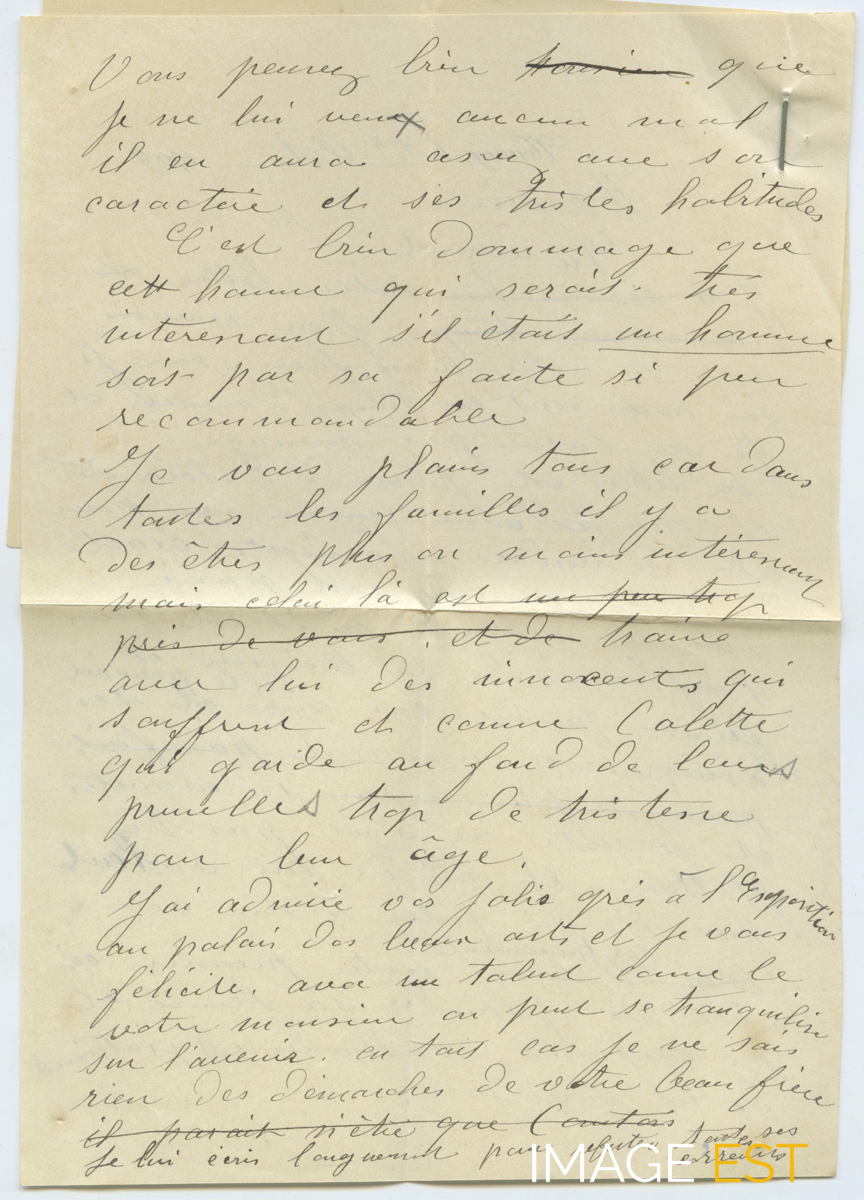 Vous pensez bien que
je ne lui veux aucun mal
il en aura assez avec son
caractère et ses tristes habitudes
C'est bien dommage que
cett homme qui serait très
intéressant s'il était un homme
soit par sa faute si peu
recommandable
Je vous plains tous car dans
toutes les familles il y a
des êtres plus ou moins intéressant
mais celui là est un peu trop
près de vous et de traine
avec lui des innocents qui
souffrent et comme Colette
qui garde au fond de leurs
prunelles trop de tristesse
pour leur âge.
J'ai admiré vos jolis grès à l'Exposition
au palais des beaux arts et je vous
félicite. avec un talent comme le
votre monsieur on peut se tranquilise
sur l'avenir. en tout cas je ne sais
rien des démarches de votre beau frère
il parait n'être que
Je lui écris longuement pour réfuter toutes ses
erreurs
IMAGE EST